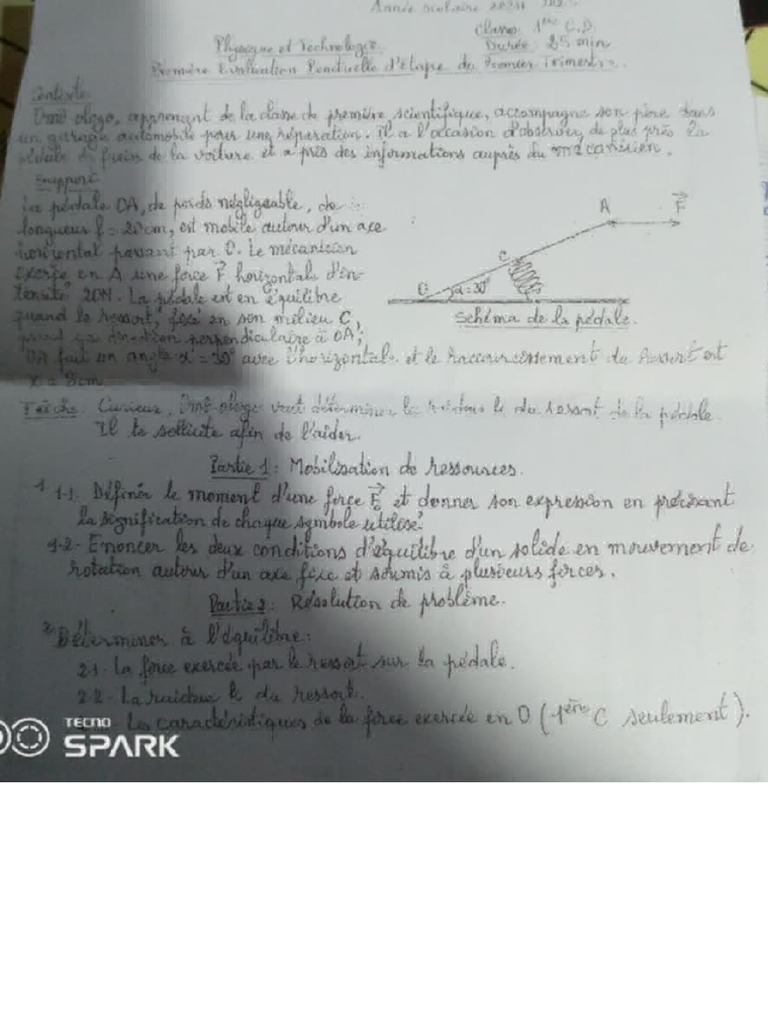 Année scolaire
Classe: 1ère C.D
Physique et Technologie Durée: 25 min
Première Evaluation Ponctuelle d'étape du Premier Trimestre.
Contexte
ologo, apprenant de la classe de première scientifique, accompagne son père dans
un garage automobile pour une réparation. Il a l'occasion d'observer de plus près la
pédale de frein de la voiture et a pris des informations auprès du mécanicien.
Support:
La pédale OA, de poids négligeable, de
longueur l = 20cm, est mobile autour d'un axe
horizontal passant par O. Le mécanicien
exerce en A une force F⃗ horizontale d'in-
tensité 20N. La pédale est en équilibre
quand le ressort, fixé en son milieu C,
prend sa direction perpendiculaire à OA;
OA fait un angle α = 30° avec l'horizontale et le raccourcissement du ressort est
x = 8cm
A
F⃗
C
O α=30°
Schéma de la pédale.
Tâche: Curieux, ologo veut déterminer la raideur k du ressort de la pédale.
Il te sollicite afin de l'aider.
Partie 1: Mobilisation de ressources.
1 1-1. Définir le moment d'une force F⃗ et donner son expression en précisant
la signification de chaque symbole utilisé.
1-2- Enoncer les deux conditions d'équilibre d'un solide en mouvement de
rotation autour d'un axe fixe et soumis à plusieurs forces.
Partie 2: Résolution de problème.
2 Déterminer à l'équilibre:
2-1- La force exercée par le ressort sur la pédale.
2-2- La raideur k du ressort.
Les caractéristiques de la force exercée en O (1ère C seulement).
TECNO
SPARK